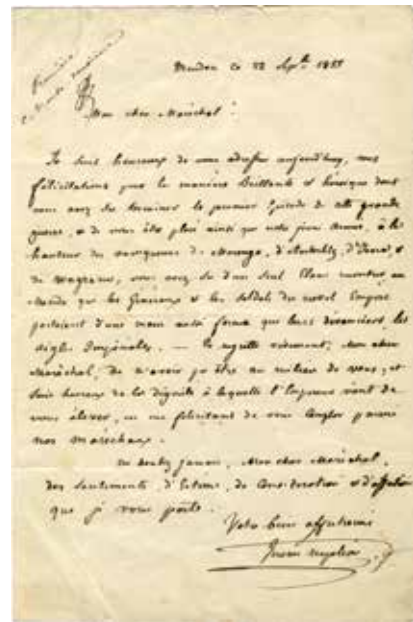 Meudon ce 22 Sept. 1855
Mon cher Maréchal :
Je suis heureux de vous adresser aujourd'huy, mes
félicitations pour la manière Brillante & héroïque dont
vous avez su terminer le premier Episode de cette grande
guerre, & de vous être placé ainsi que notre jeune Armée, à la
hauteur des vainqueurs de Marengo, d'Austerlitz, d'Iéna, &
de Wagram, vous avez su d'un Seul Elan montrer au
Monde que les Généraux & les Soldats du nouvel Empire
portaient d'une main aussi ferme que leurs devanciers, les
Aigles Impériales. — Je regrette vivement, Mon cher
Maréchal, de n'avoir pu être au milieu de vous, et
suis heureux de la dignité à laquelle l'Empereur vient de
vous élever, en me félicitant de vous Compter parmi
nos maréchaux.
ne doutez jamais, Mon cher Maréchal,
des Sentiments d'Estime, de Considération & d'affection
que je vous porte.
Votre bien affectionné